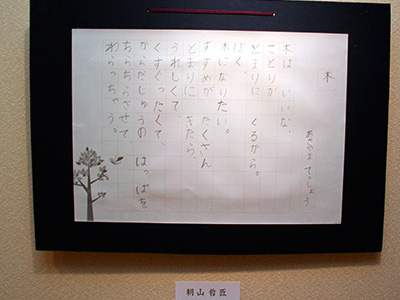 木
あさやま てっしょう
木は、いいな、
ことりが
とまりに くるから。
ぼく、
木になりたい。
すずめが たくさん
とまりに きたら、
うれしくて、
くすぐったくて、
からだじゅうの はっぱを
ちらちらさせて、
わらっちゃう。
朝山 哲匠